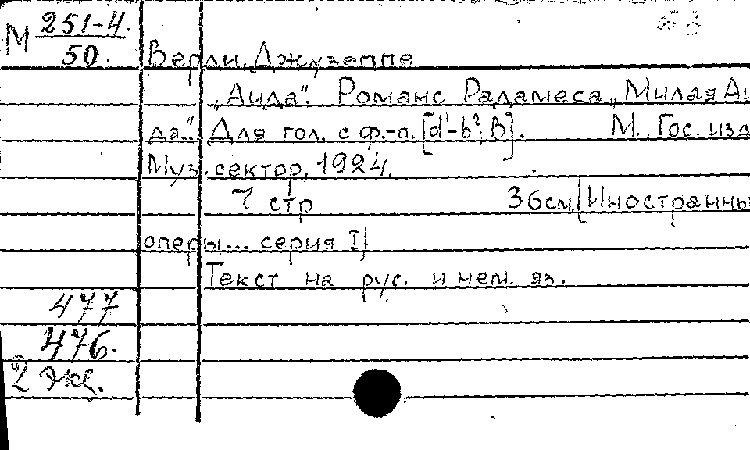 М 251-4.
50. Верди, Джузеппе
„Аида". Романс Радамеса „Милая Аи
да". Для гол. с ф.-п. [d¹-b²; B]. М. Гос. изд
Муз. сектор, 1924.
7 стр 36см (Иностранны
оперы... серия I)
Текст на рус. и нем. яз.
477
476.
2 экз.